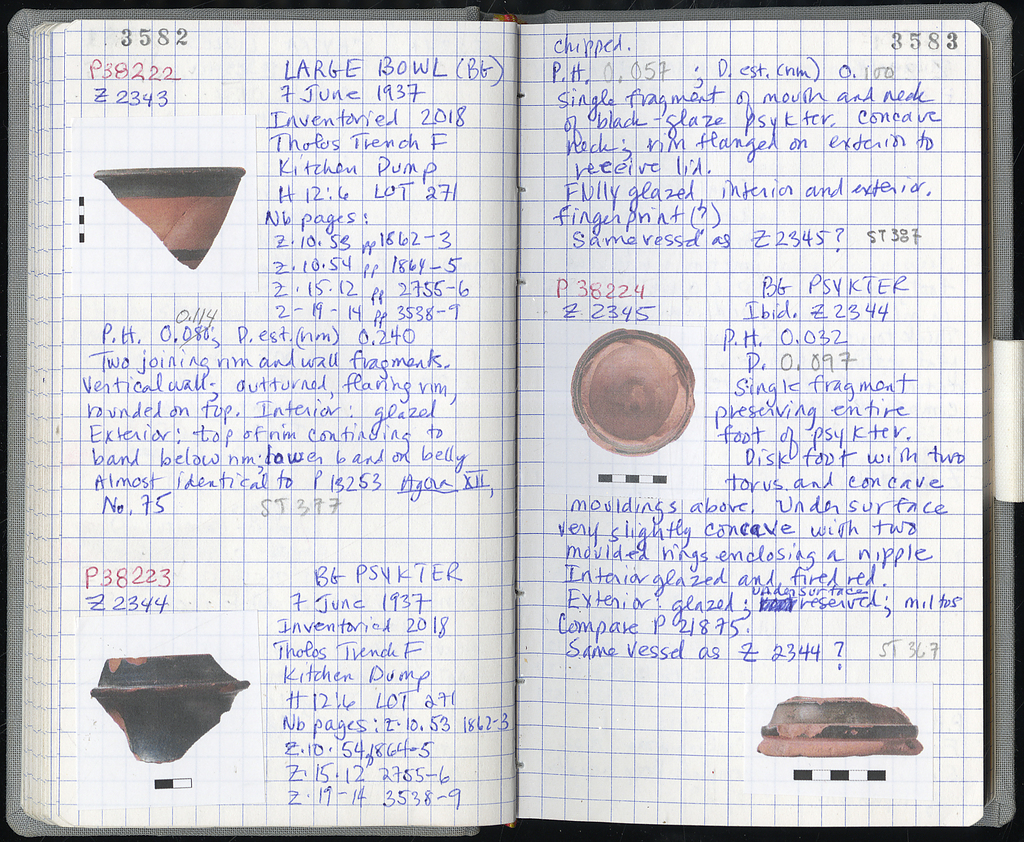 3582
P38222 LARGE BOWL (BG)
Z 2343 7 June 1937
Inventoried 2018
Tholos Trench F
Kitchen Dump
H 12:6 LOT 271
Nb pages:
Z.10.53 pp 1862-3
Z.10.54 pp 1864-5
Z.15.12 pp 2755-6
Z-19-14 pp 3538-9
0.114
P.H. 0.086; D.est.(rim) 0.240
Two joining rim and wall fragments.
Vertical wall; outturned, flaring rim,
rounded on top. Interior: glazed
Exterior: top of rim continuing to
band below rim; lower band on belly
Almost identical to P 13253 Agora XII,
No. 75 ST 377
P38223 BG PSYKTER
Z 2344 7 June 1937
Inventoried 2018
Tholos Trench F
Kitchen Dump
H 12:6 LOT 271
Nb pages: Z.10.53 1862-3
Z.10.54 1864-5
Z.15.12 2755-6
Z.19-14 3538-9
3583
chipped.
P.H. 0.057; D.est.(rim) 0.100
Single fragment of mouth and neck
of black-glaze psykter. Concave
neck; rim flanged on exterior to
receive lid.
Fully glazed interior and exterior.
fingerprint(?)
Same vessel as Z 2345? ST 387
P 38224 BG PSYKTER
Z 2345 Ibid. Z 2344
P.H. 0.032
D. 0.097
Single fragment
preserving entire
foot of psykter.
Disk foot with two
torus and concave
mouldings above. Undersurface
very slightly concave with two
moulded rings enclosing a nipple
Interior glazed and fired red.
undersurface
Exterior: glazed; reserved; miltos
Compare P 21875.
Same vessel as Z 2344? ST 367